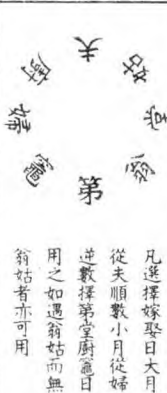 夫
姑
堂
翁
第
竈
婦
廚
凡選擇嫁娶日大月
從夫順數小月從婦
逆數擇第堂廚竈日
用之如遇翁姑而無
翁姑者亦可用